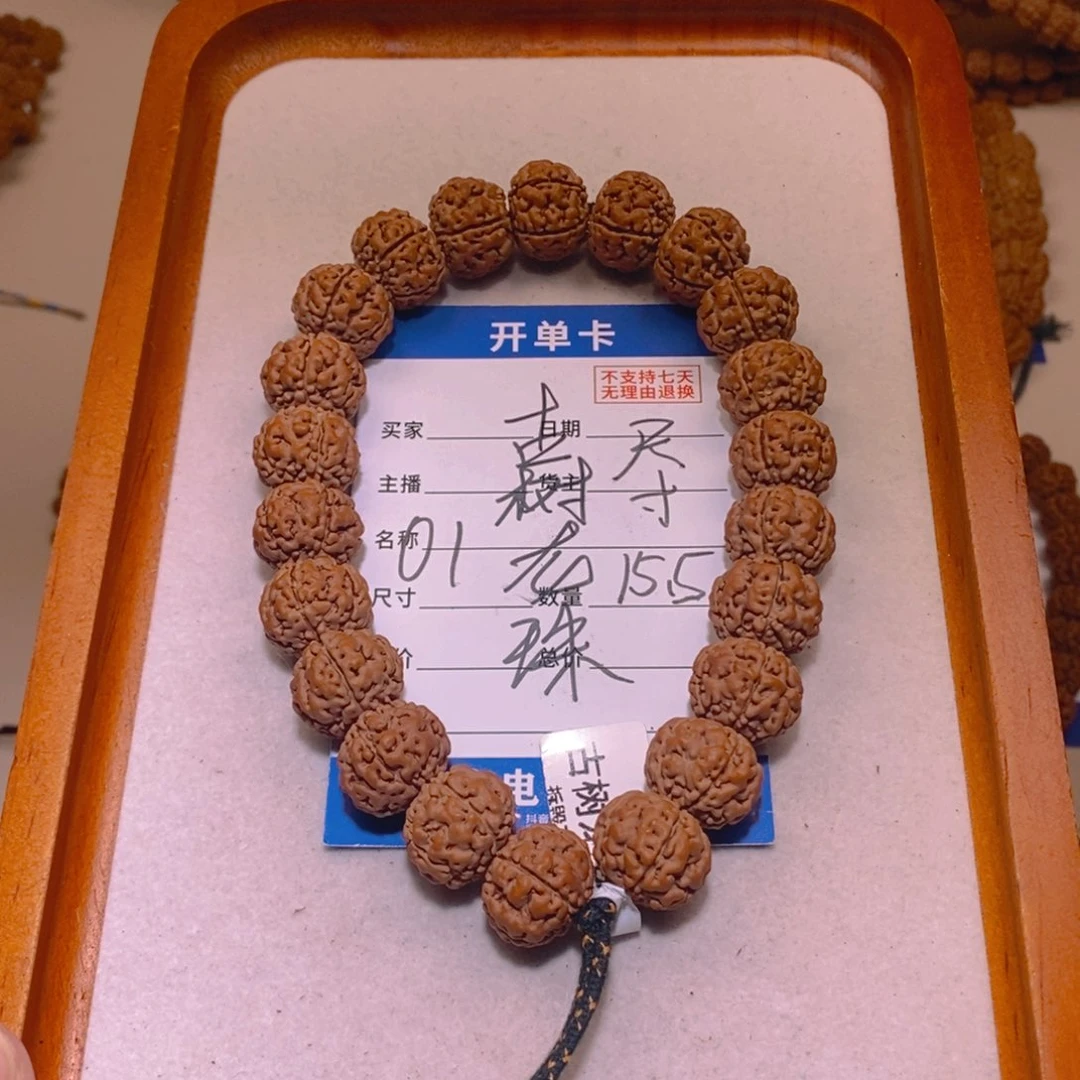 开单卡
不支持七天
无理由退换
买家 日期
主播 货主
名称
尺寸 数量
价 总价
古樹老珠
尺寸
01
155
电
抖音
古树